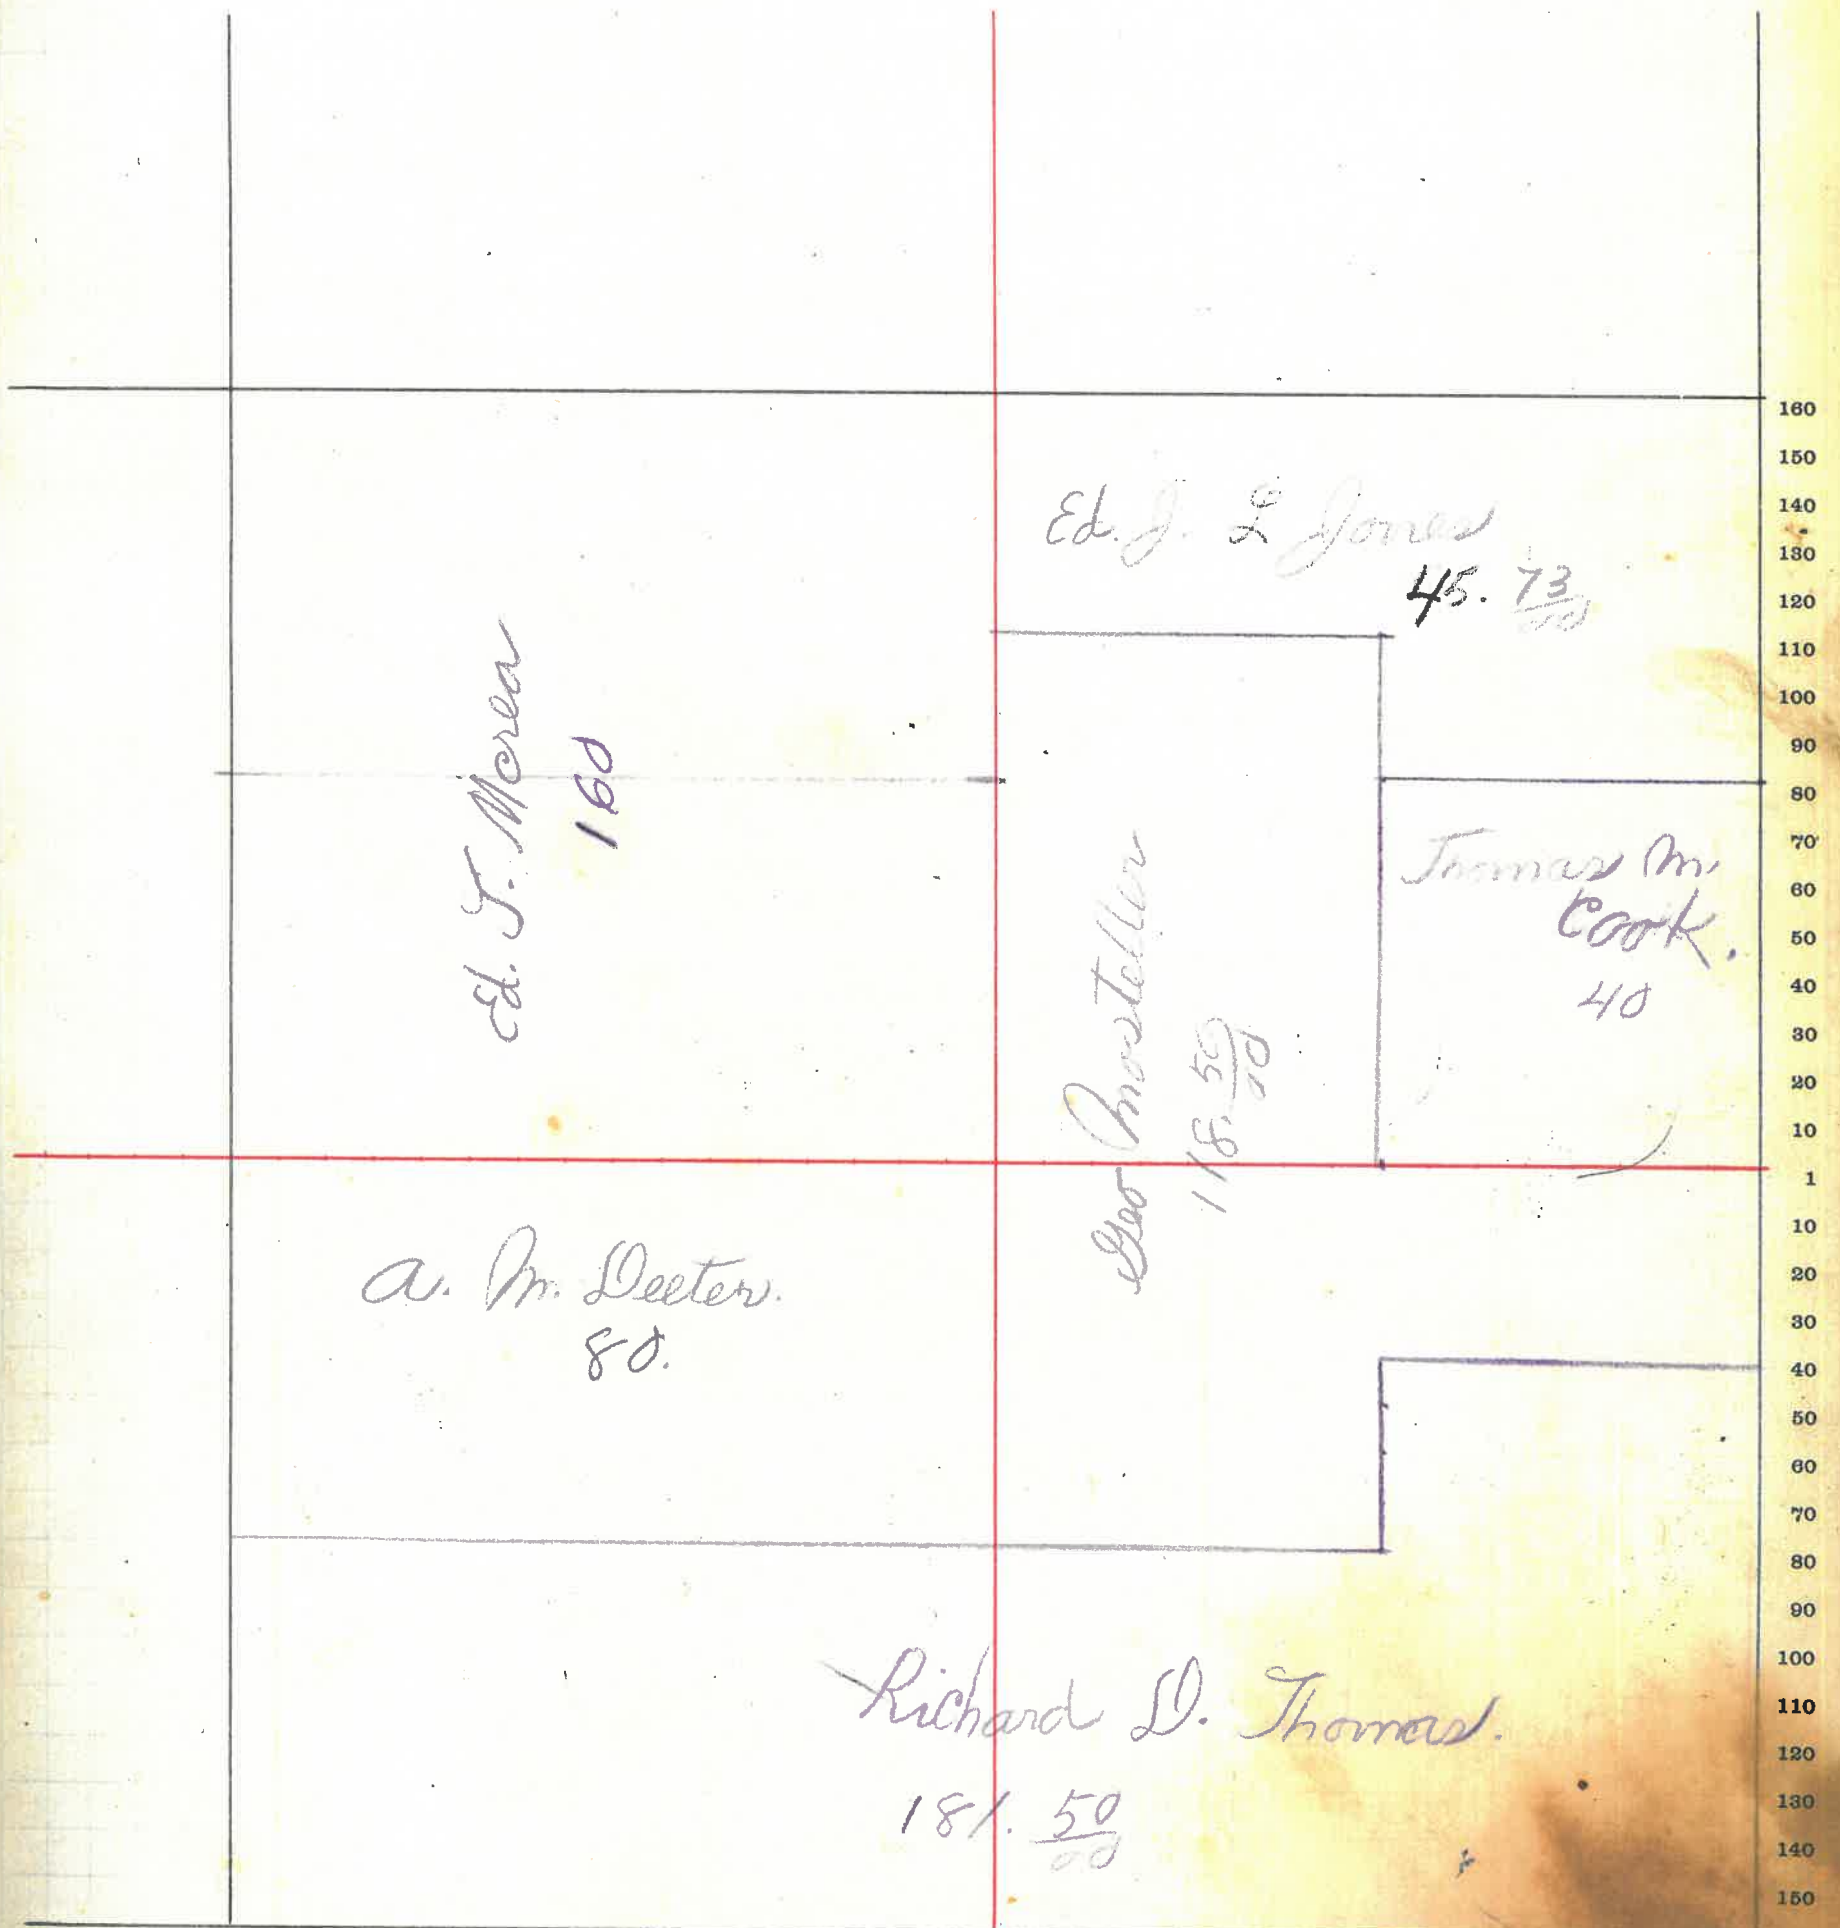 Ed. J. L Jones
45. 73/00
Ed. T. Mcrea
160
Thomas M.
Cook.
40
Geo Mosteller
118. 50/00
A. M. Deeter.
80.
Richard D. Thomas.
181. 50/00
160
150
140
130
120
110
100
90
80
70
60
50
40
30
20
10
1
10
20
30
40
50
60
70
80
90
100
110
120
130
140
150